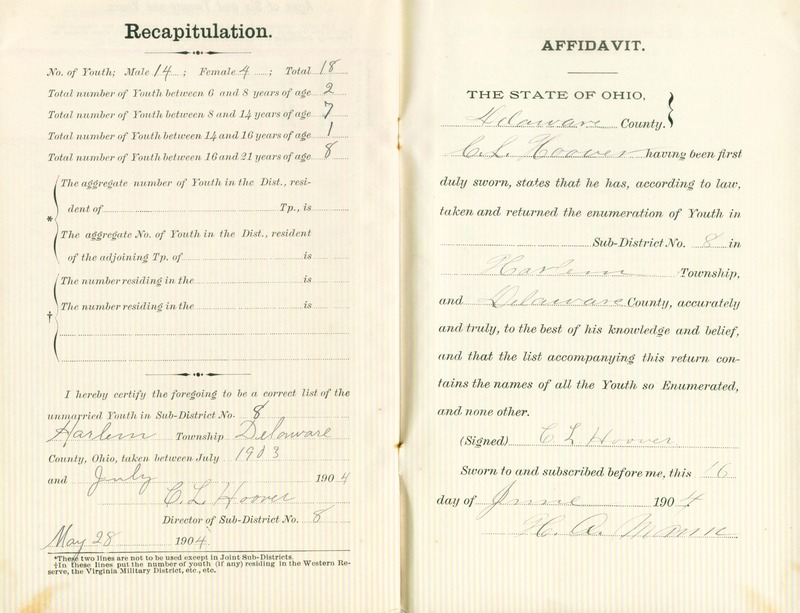 Recapitulation.
No. of Youth; Male 14 ; Female 4 ; Total 18
Total number of Youth between 6 and 8 years of age 2
Total number of Youth between 8 and 14 years of age 7
Total number of Youth between 14 and 16 years of age 1
Total number of Youth between 16 and 21 years of age 8
The aggregate number of Youth in the Dist., resi-
dent of Tp., is
*
The aggregate No. of Youth in the Dist., resident
of the adjoining Tp. of is
The number residing in the is
The number residing in the is
†
I hereby certify the foregoing to be a correct list of the
unmarried Youth in Sub-District No. 8
Harlem Township Delaware
County, Ohio, taken between July 1903
and July 1904
C. L. Hoover
Director of Sub-District No. 8
May 28 1904
*These two lines are not to be used except in Joint Sub-Districts.
†In these lines put the number of youth (if any) residing in the Western Re-
serve, the Virginia Military District, etc., etc.
AFFIDAVIT.
THE STATE OF OHIO,
Delaware County.
C. L. Hoover having been first
duly sworn, states that he has, according to law,
taken and returned the enumeration of Youth in
Sub-District No. 8 in
Harlem Township,
and Delaware County, accurately
and truly, to the best of his knowledge and belief,
and that the list accompanying this return con-
tains the names of all the Youth so Enumerated,
and none other.
(Signed) C L Hoover
Sworn to and subscribed before me, this 16
day of June 1904
H. A. Mann